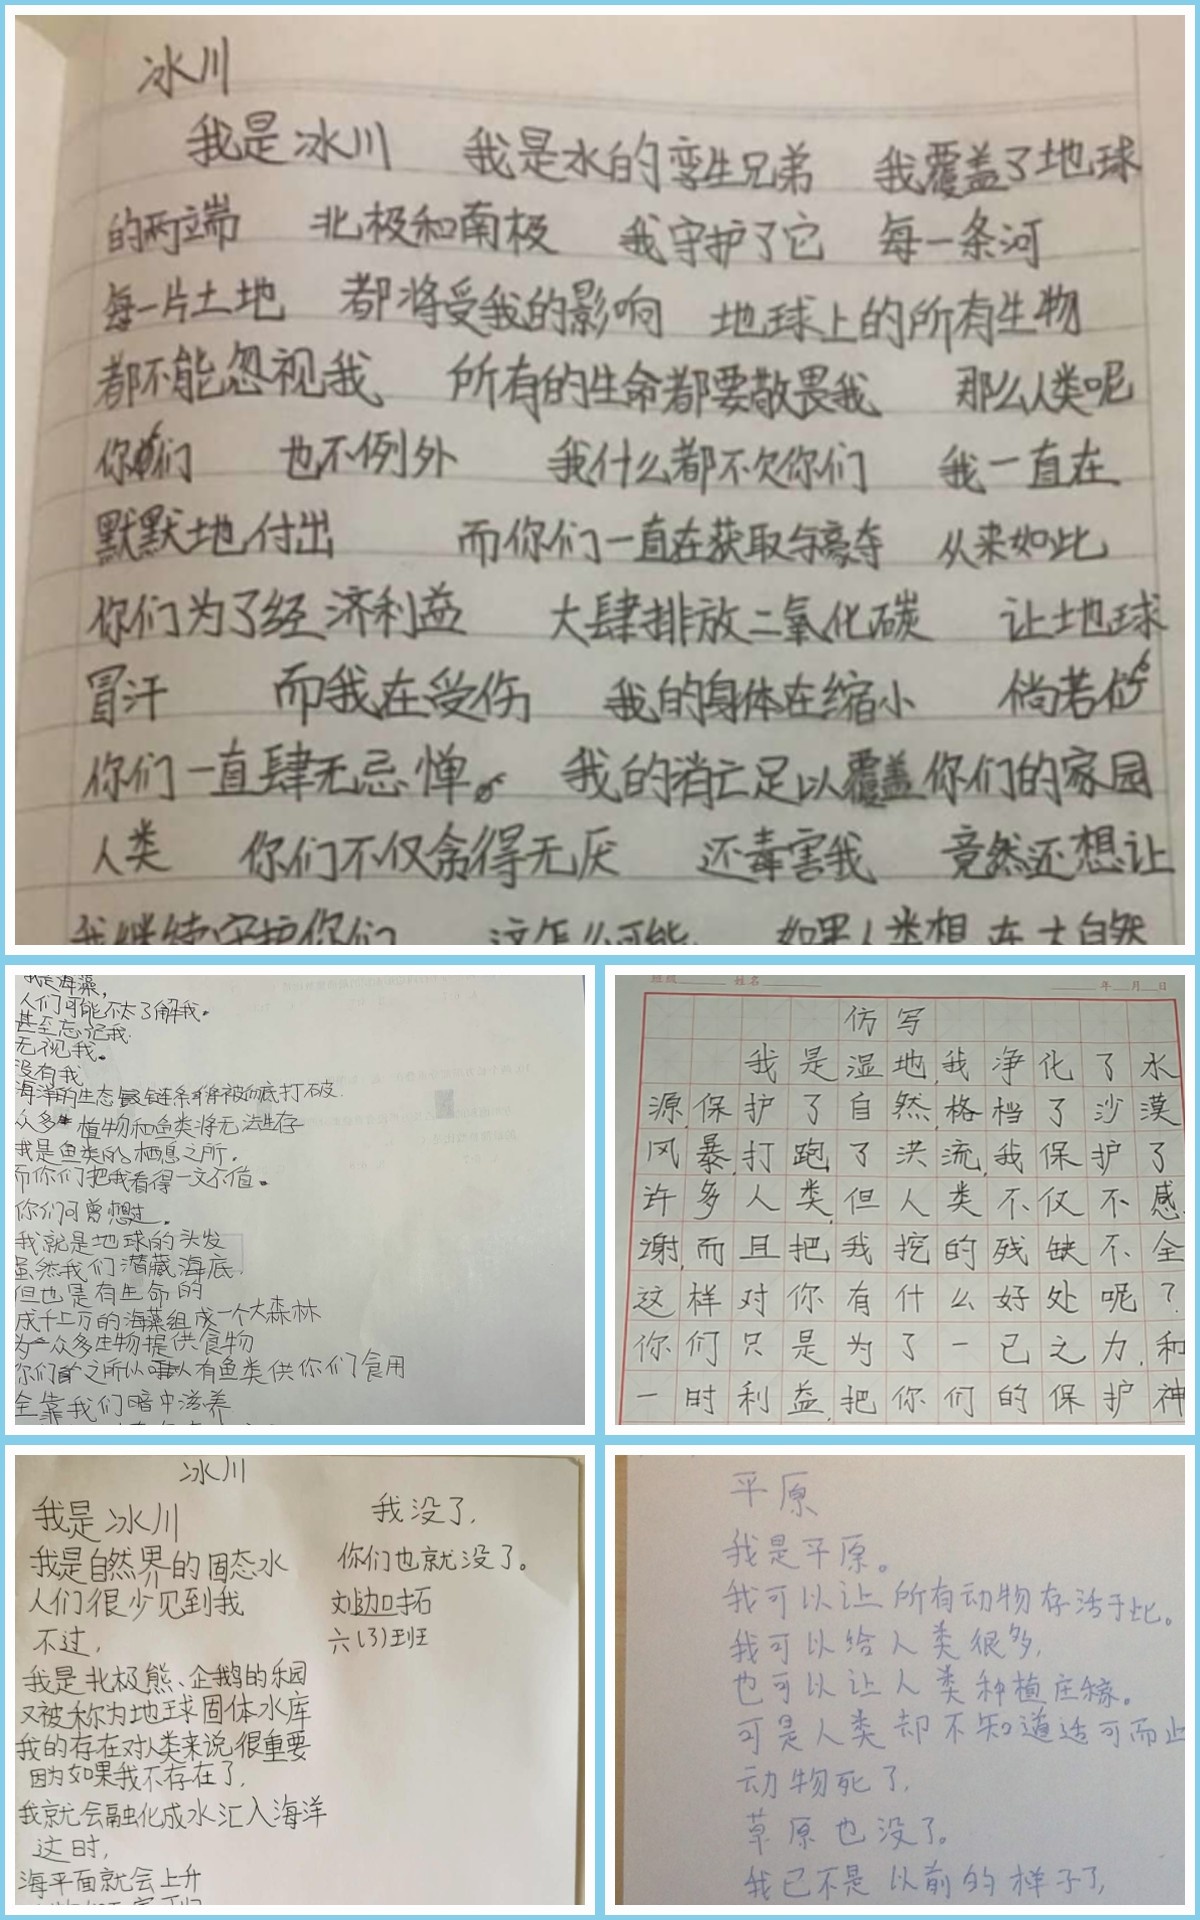 冰川
我是冰川 我是水的孪生兄弟 我覆盖了地球
的两端 北极和南极 我守护了它 每一条河
每一片土地 都将受我的影响 地球上的所有生物
都不能忽视我 所有的生命都要敬畏我 那么人类呢
你们 也不例外 我什么都不欠你们 我一直在
默默地付出 而你们一直在获取与豪夺 从来如此
你们为了经济利益 大肆排放二氧化碳 让地球
冒汗 而我在受伤 我的身体在缩小 倘若
你们一直肆无忌惮。 我的消亡足以覆盖你们的家园
人类 你们不仅贪得无厌 还毒害我 竟然还想让
我继续守护你们 这怎么可能 如果人类想 在大自然
我是海藻,
人们可能不太了解我。
甚至忘记我.
无视我。
没有我
海洋的生态链条将被彻底打破.
众多植物和鱼类将无法生存
我是鱼类的栖息之所.
而你们把我看得一文不值。
你们可曾想过。
我就是地球的头发
虽然我们潜藏海底.
但也是有生命的
成千上万的海藻组成一个大森林
为众多生物提供食物
你们之所以有鱼类供你们食用
全靠我们暗中滋养.
班级 姓名 年 月 日
仿写
我是湿地,我净化了水
源,保护了自然,格档了沙漠
风暴,打跑了洪流,我保护了
许多人类,但人类不仅不感
谢,而且把我挖的残缺不全
这样对你有什么好处呢?
你们只是为了一己之力,和
一时利益,把你们的保护神
冰川
我是冰川
我是自然界的固态水
人们很少见到我
不过,
我是北极熊、企鹅的乐园
又被称为地球固体水库
我的存在对人类来说很重要
因为如果我不存在了,
我就会融化成水汇入海洋
这时,
海平面就会上升
我没了,
你们也就没了。
六(3)班
平原
我是平原。
我可以让所有动物存活于此。
我可以给人类很多,
也可以让人类种植庄稼。
可是人类却不知道适可而止
动物死了,
草原也没了。
我已不是以前的样子了,